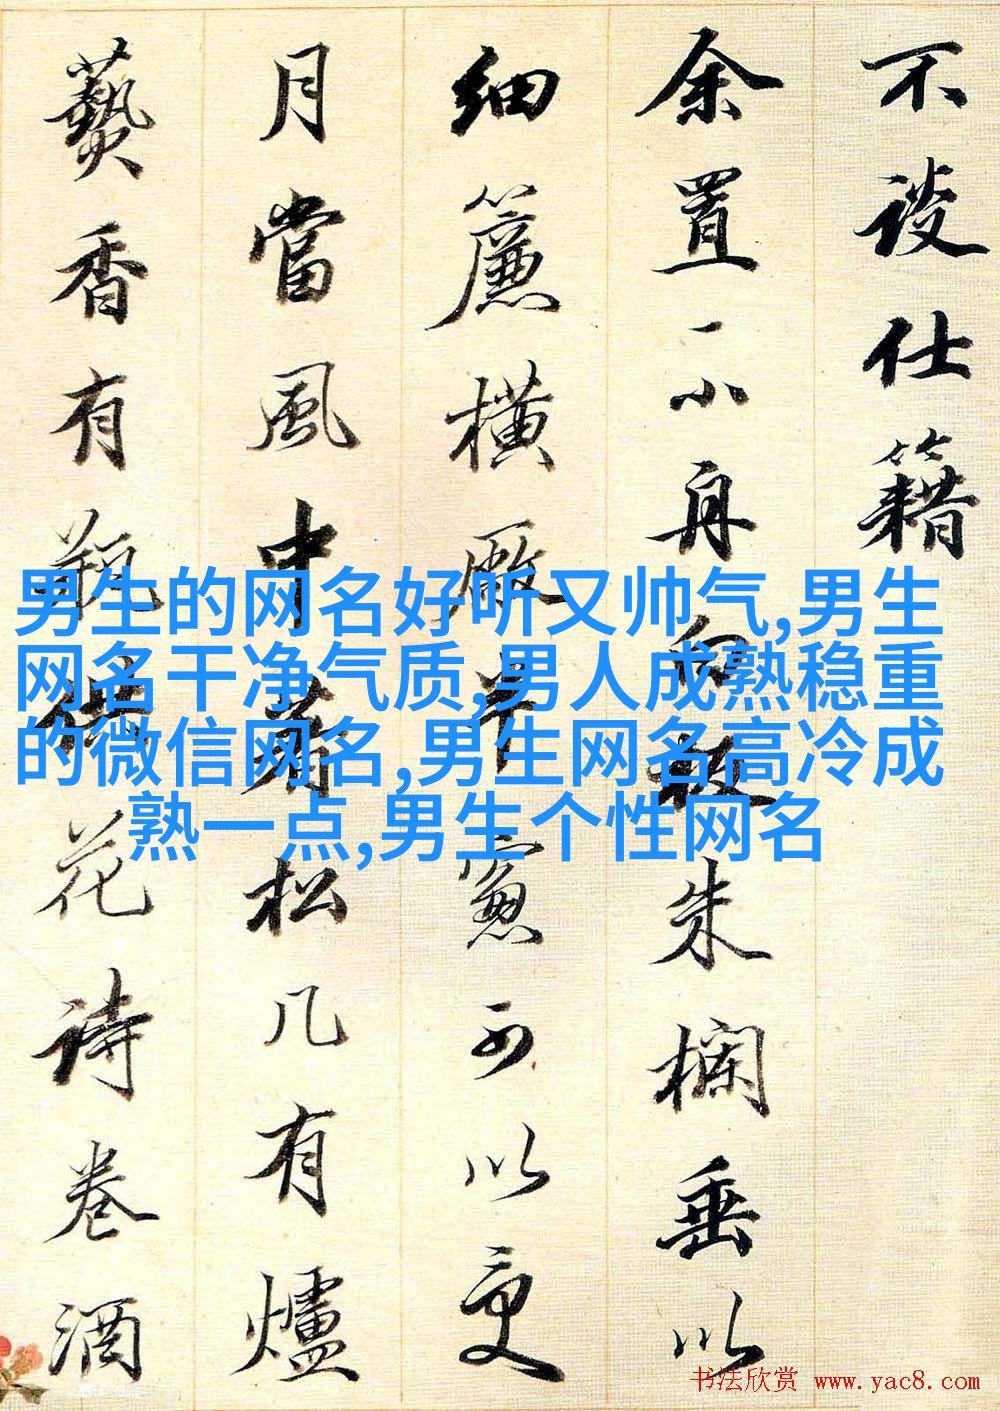 不談仕籍
余置一小舟白板朱欄垂以
細簾橫厰半窻可以更
月當風中着松几有爐
爇香有瓶供花詩卷酒
男生的网名好听又帅气,男生
网名干净气质,男人成熟稳重
的微信网名,男生网名高冷成
熟一点,男生个性网名
书法欣赏 www.yac8.com